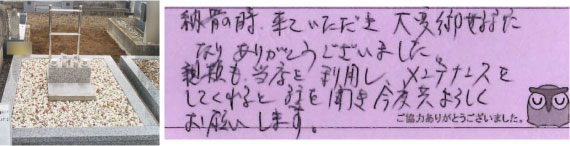 納骨の時、来ていただき大変御世話に
なりありがとうございました。
も当店を利用し、メンテナンスを
してくれると話を聞き今後共よろしく
お願いします。
ご協力ありがとうございました。